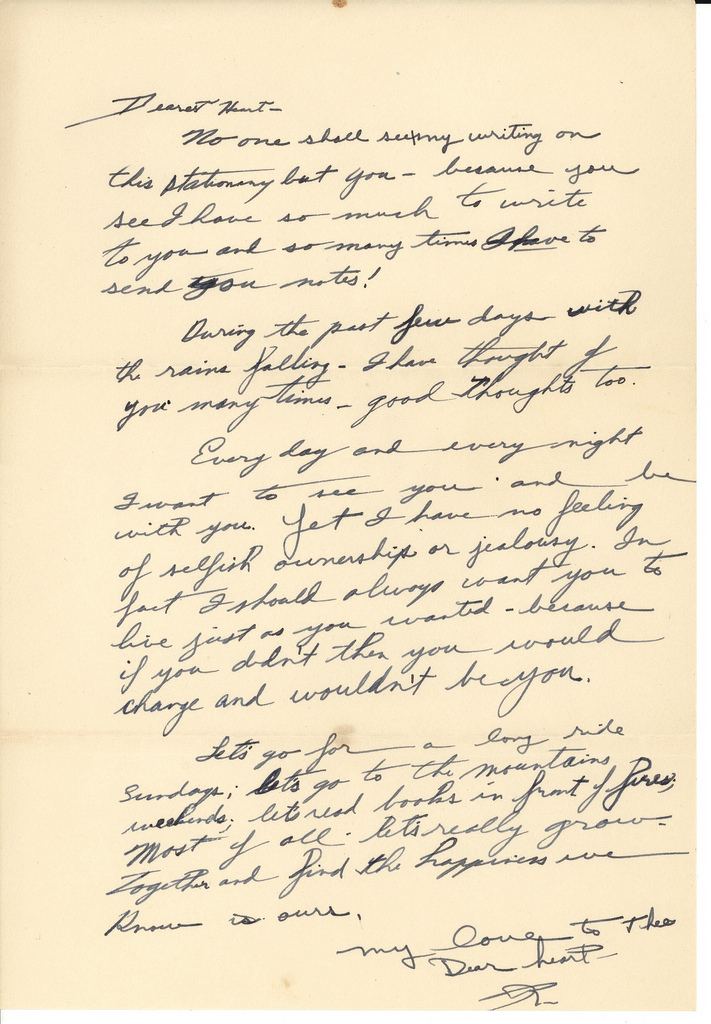 Dearest Heart-
No one shall see my writing on
this stationary but you - because you
see I have so much to write
to you and so many times I have to
send you notes!
During the past few days with
the rains falling - I have thought of
you many times - good thoughts too.
Every day and every night
I want to see you and be
with you. Yet I have no feeling
of selfish ownership or jealousy. In
fact I should always want you to
live just as you wanted - because
if you didn't then you would
change and wouldn't be you.
Let's go for a long ride
Sundays; let's go to the mountains
weekends; let's read books in front of fires;
Most of all - let's really grow
together and find the happiness we
know is ours.
My love to thee
Dear heart-
R-